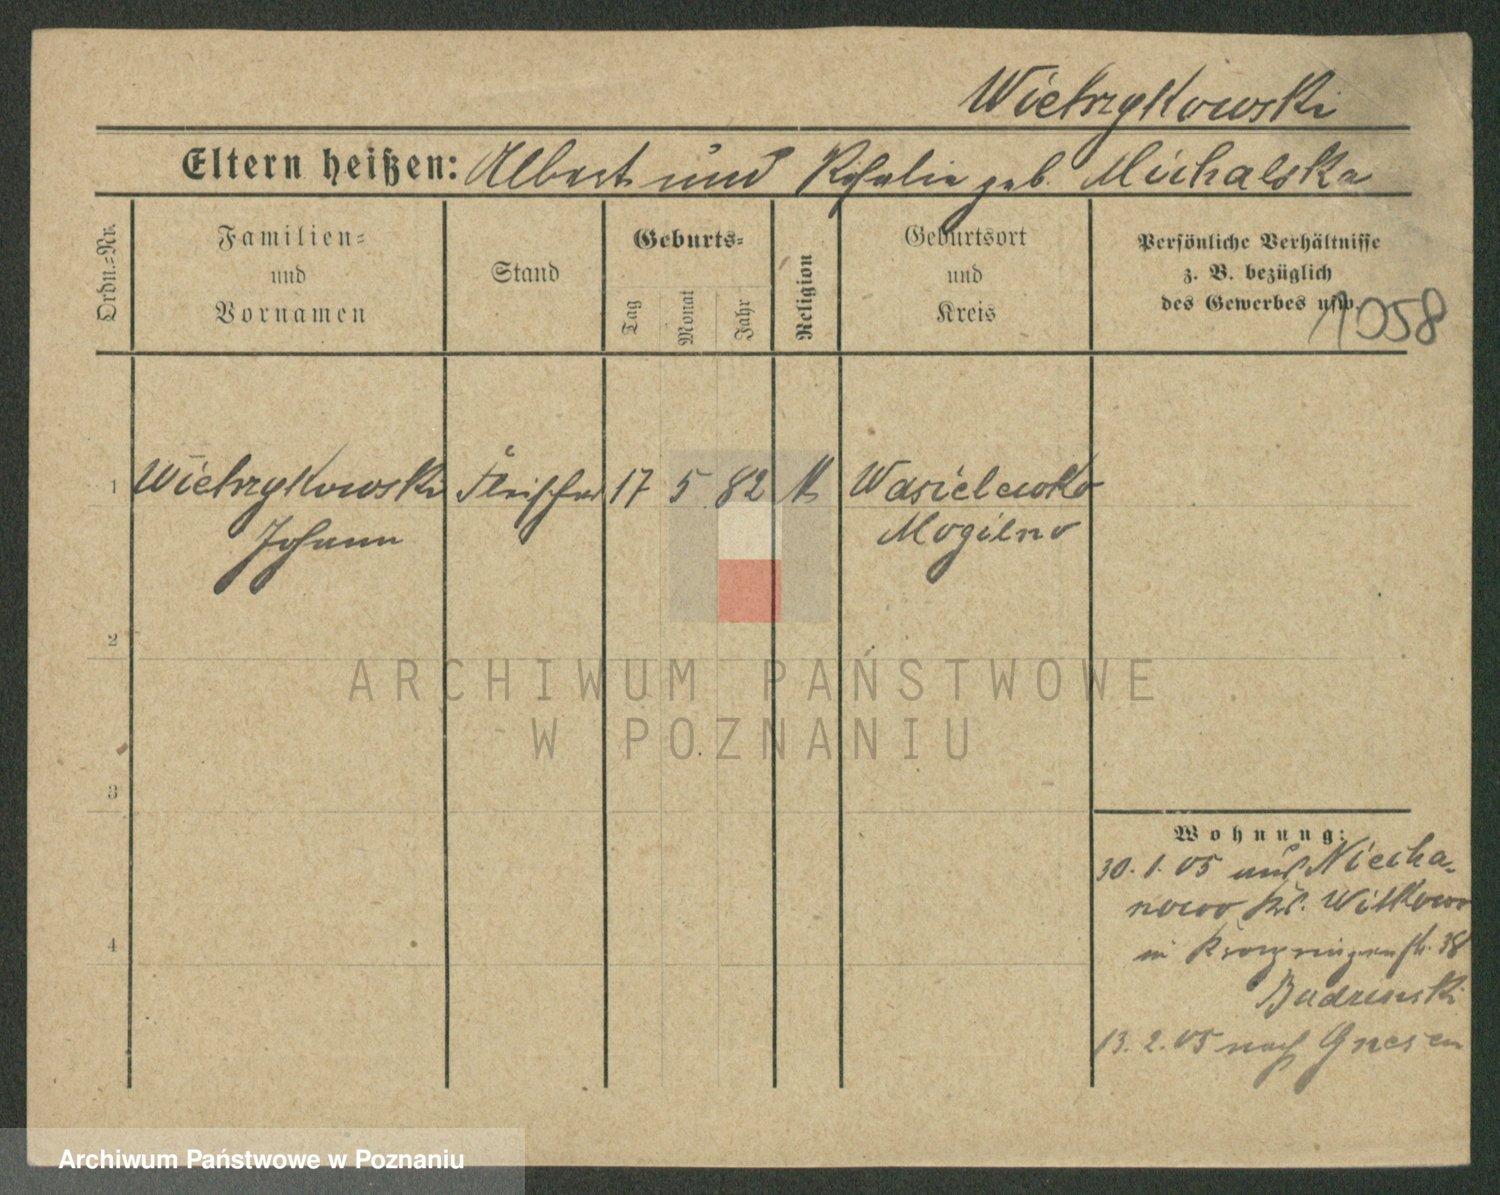 Wietrzykowski
Eltern heißen: Albert und Rosalie geb. Michalska
Ordn.-Nr.
Familien- und Vornamen
Stand
Geburts-
Tag
Monat
Jahr
Religion
Geburtsort und Kreis
Persönliche Verhältnisse
z. B. bezüglich
des Gewerbes usw.
1058
1 Wietrzykowski Fleischer 17 5 82 k Wasielewko
Johann Mogilno
2
3
4
Wohnung:
30. 1. 05 aus Niecha-
nowo Kr. Witkowo
in 38
Budzinski
13. 2. 05 nach Gnesen
ARCHIWUM PAŃSTWOWE
W POZNANIU
Archiwum Państwowe w Poznaniu